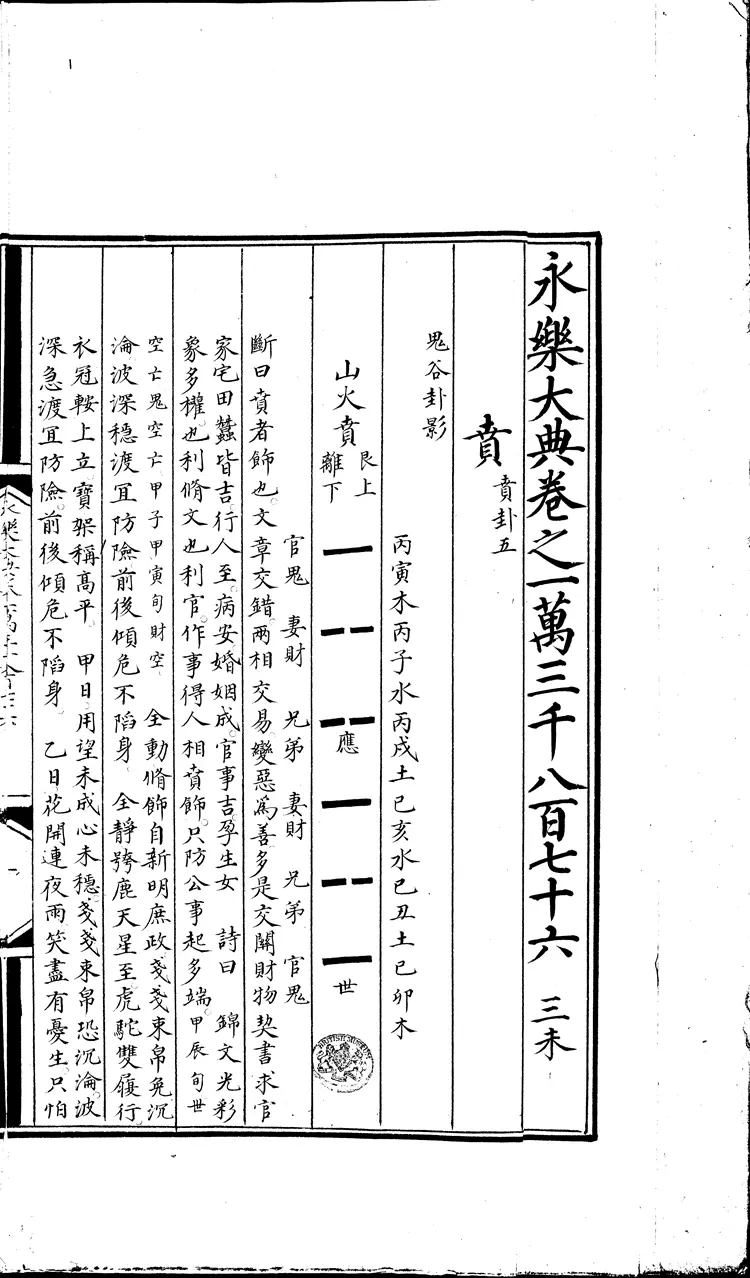 永樂大典卷之一萬三千八百七十六　三未
賁　賁卦五
鬼谷卦影
丙寅木丙子水丙戌土已亥水已丑土已卯木
山火賁　艮上離下　應　世
官鬼　妻財　兄弟　妻財　兄弟　官鬼
斷曰賁者飾也文章交錯兩相交易變惡為善多是交關財物契書求官
家宅田蠶皆吉行人至病安婚姻成官事吉孕生女　詩曰　錦文光彩
象多權也利脩文也利官作事得人相賁飾只防公事起多端甲辰旬世
空亡鬼空亡甲子甲寅旬財空　全動脩飾自新明庶政戔戔束帛免沉
淪波深穩渡宜防險前後傾危不陷身　全靜跨鹿天星至虎駝雙履行
衣冠鞍上立寶架稱高平　甲日用望未成心未穩戔戔束帛恐沉淪波
深急渡宜防險前後傾危不陷身　乙日花開連夜雨笑盡有憂生只怕
BRITISH MUSEUM